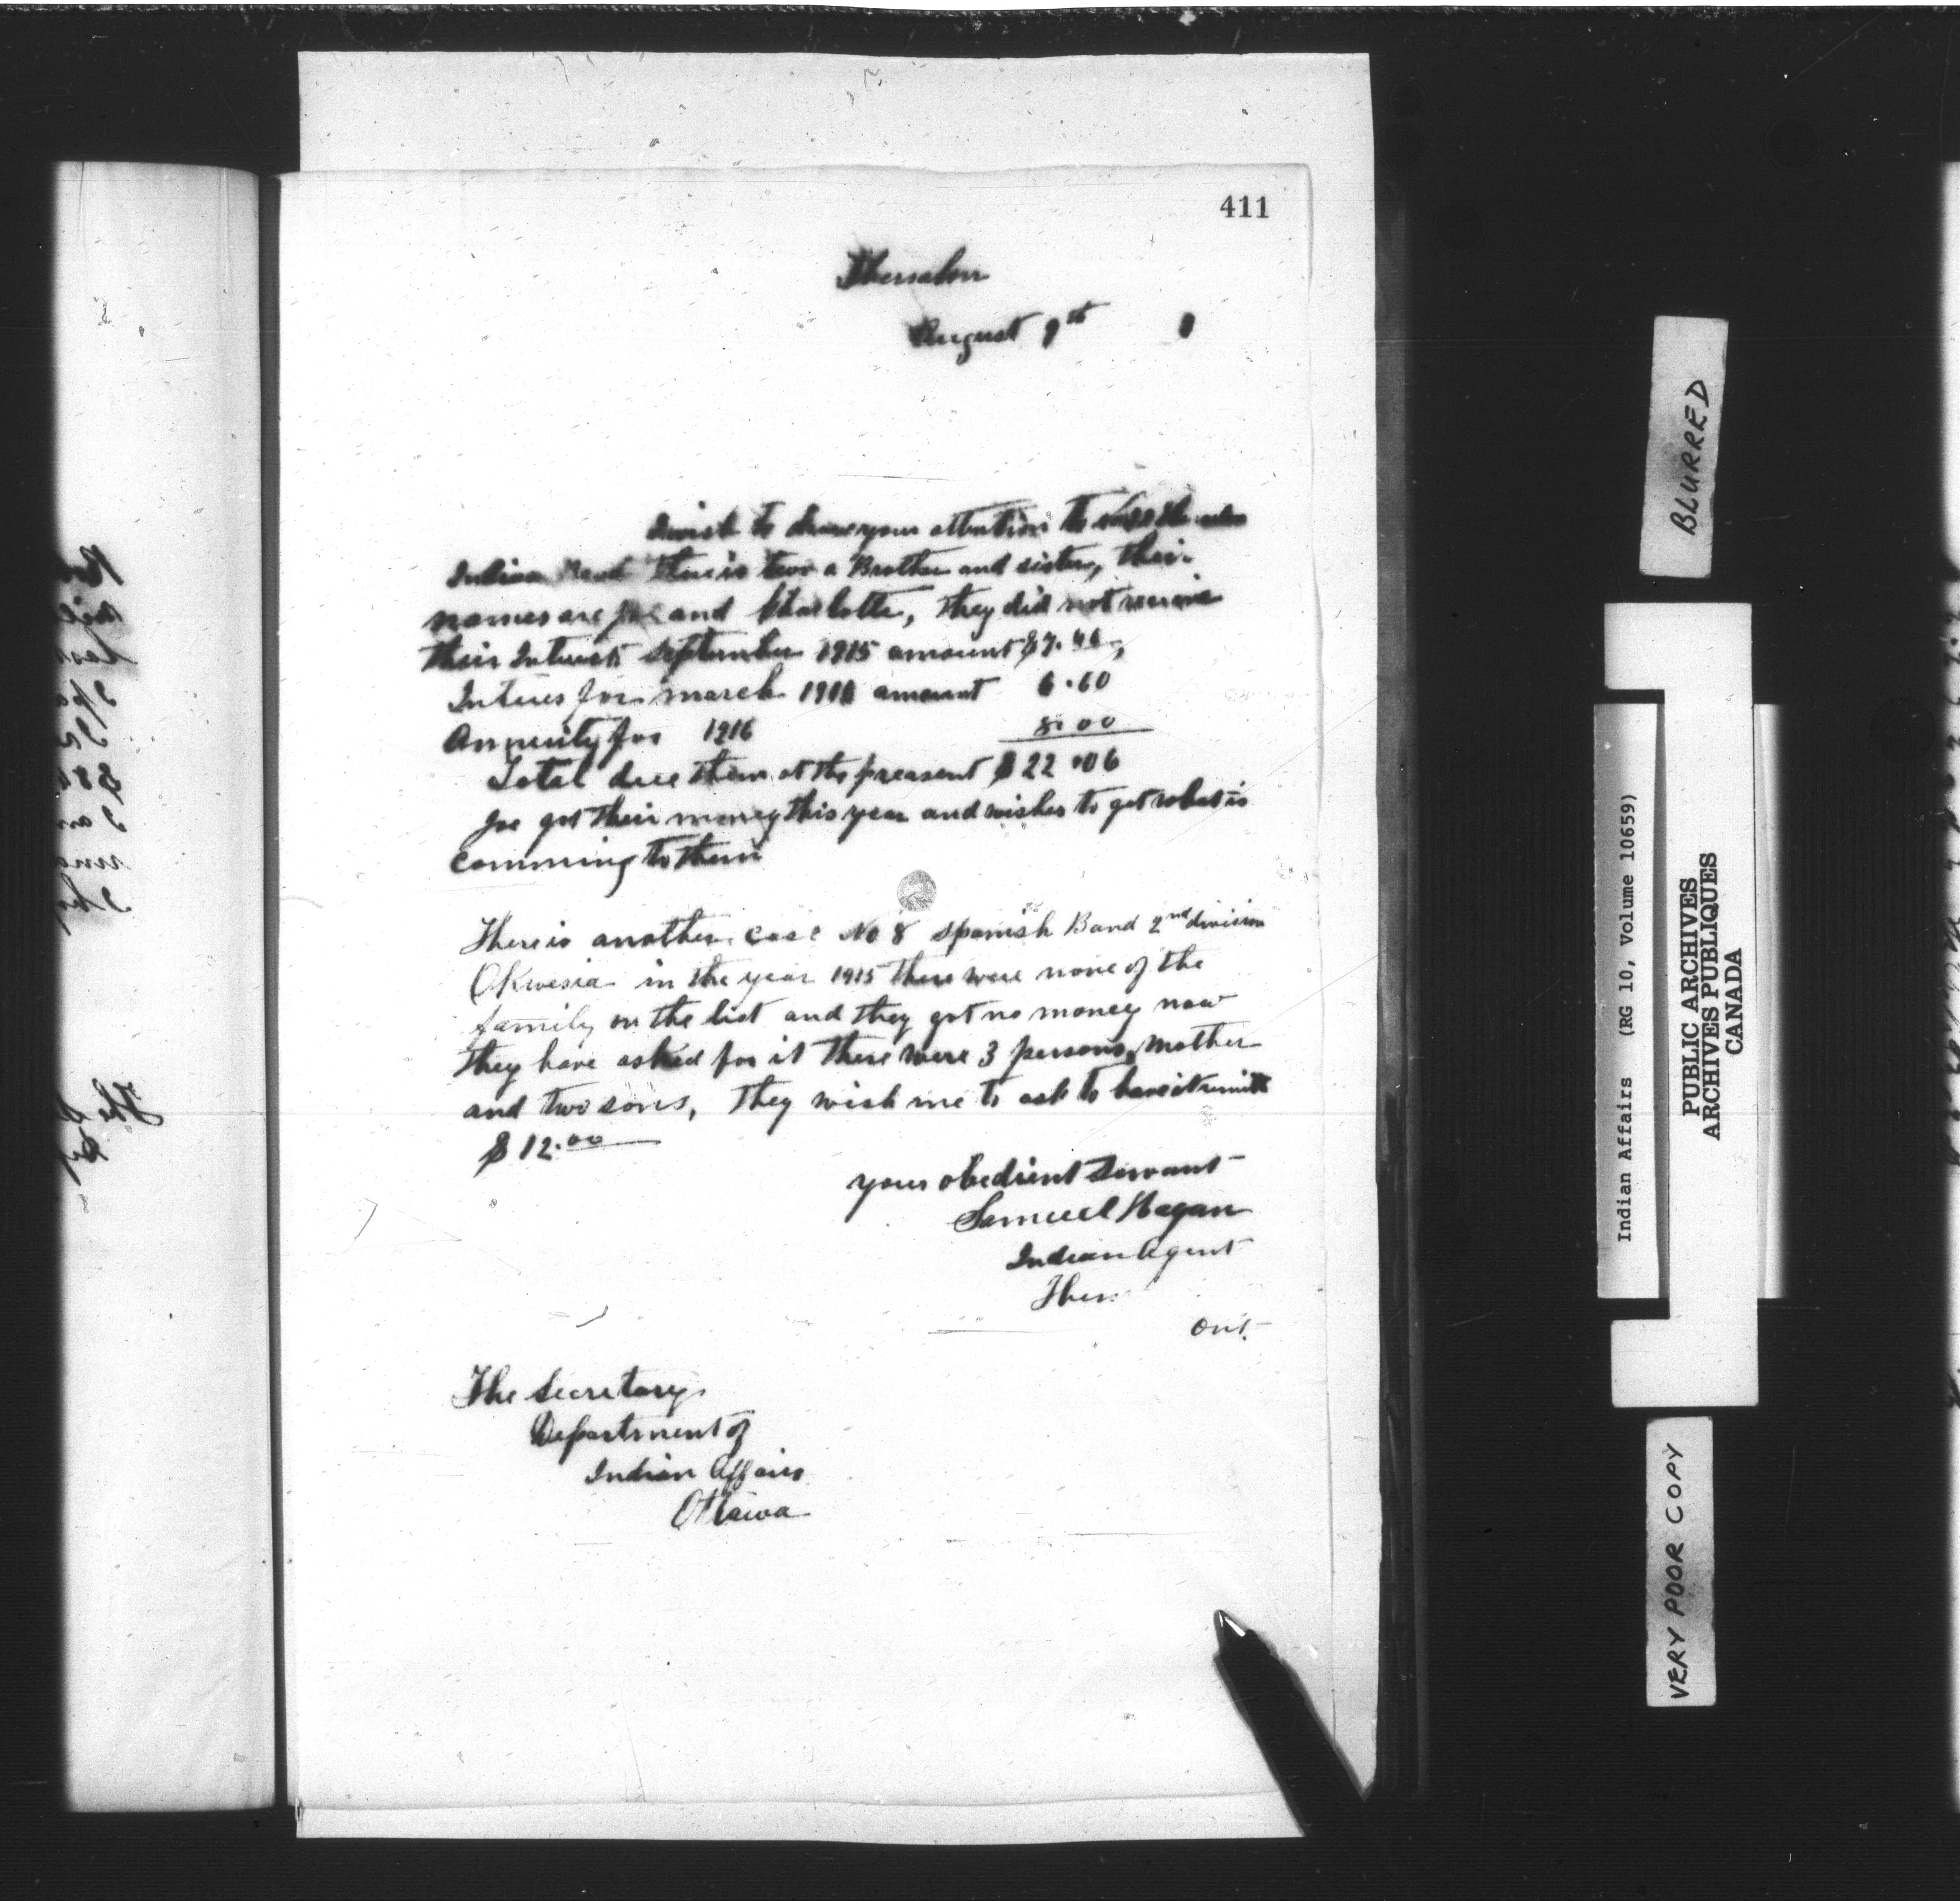 411
Thessalon
August 9th
I wish to draw your attention to
Indian Band There is two a Brother and sister, their
names are Joe and Charlotte, they did not receive
their Interest September 1915 amount $7.46,
Interes for march 1916 amount 6.60
Annuity for 1916 8.00
Total due them at the preasent $22.06
Joe got their money this year and wishes to get what is
comming to them
There is another case No 8 Spanish Band 2nd division
Okwesia in the year 1915 there were none of the
family on the list and they got no money now
they have asked for it there were 3 persons, Mother
and two sons, They wish me to ask to have it
$12.00
your obedient Servant
Samuel Hagan
Indian Agent
Thes
Ont.
The Secretary
Department of
Indian Affairs
Ottawa
BLURRED
Indian Affairs (RG 10, Volume 10659)
PUBLIC ARCHIVES
ARCHIVES PUBLIQUES
CANADA
VERY POOR COPY